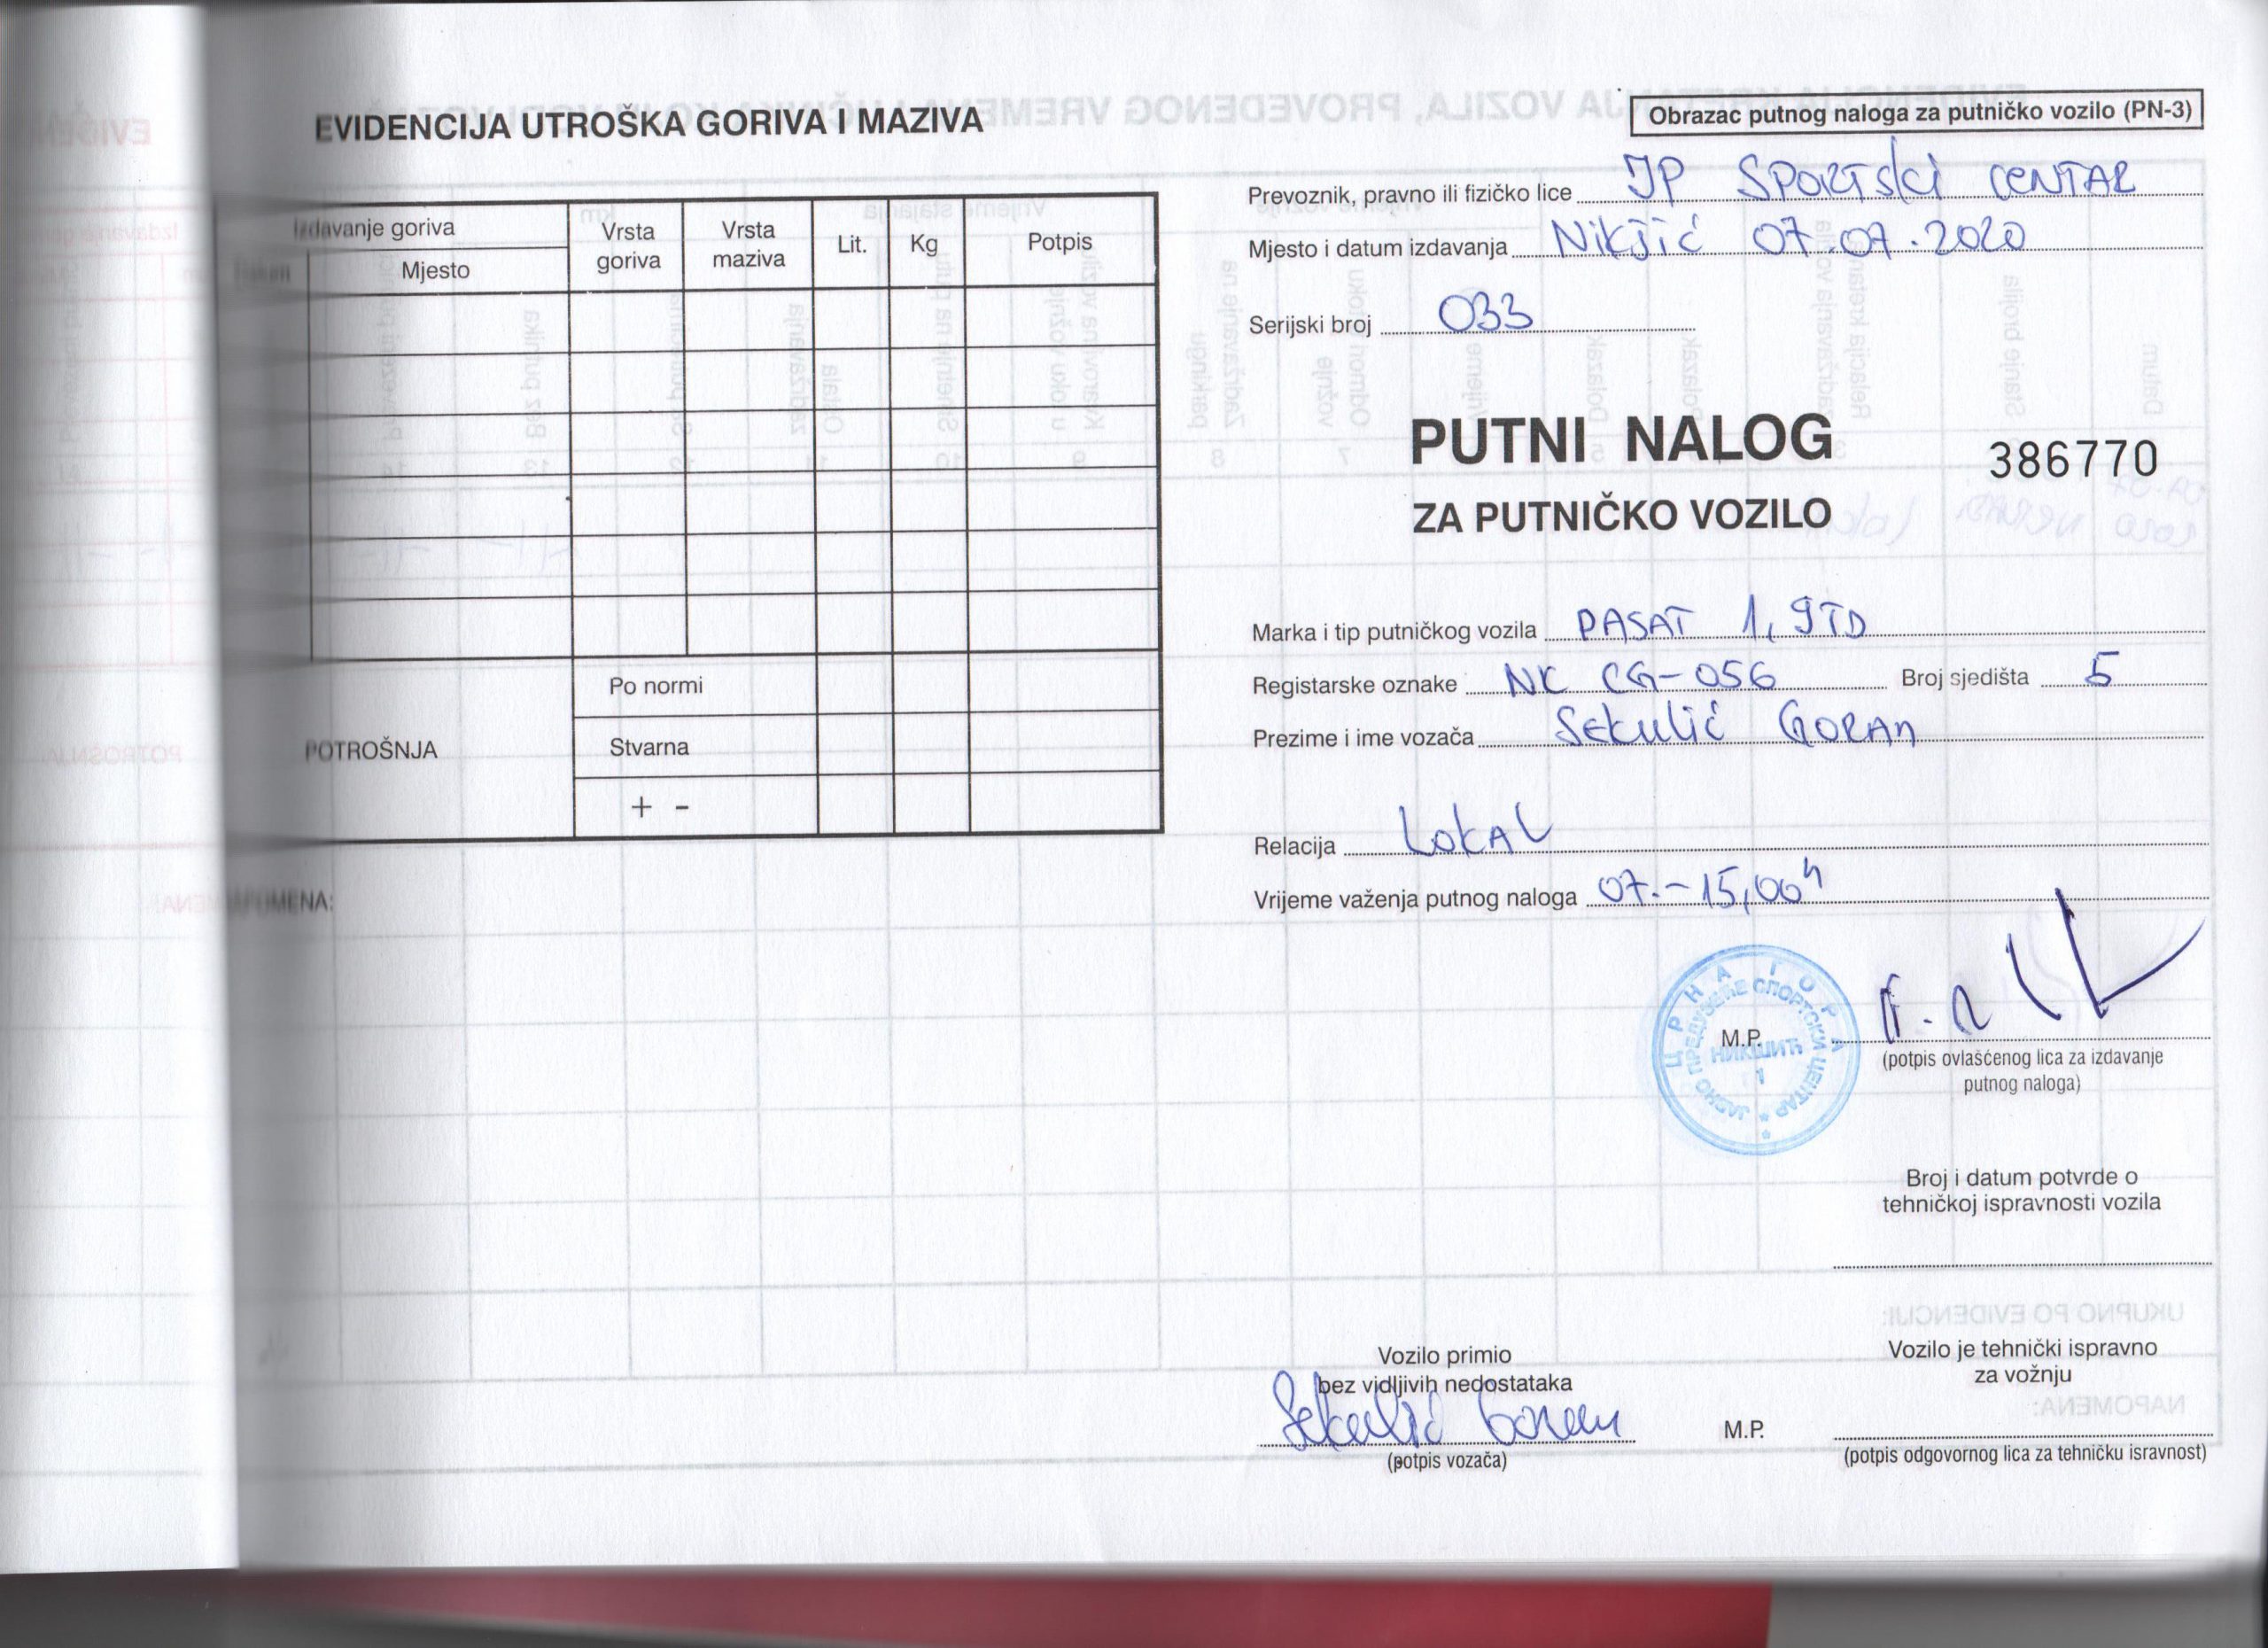 EVIDENCIJA UTROŠKA GORIVA I MAZIVA
Izdavanje goriva
Datum
Mjesto
Vrsta
goriva
Vrsta
maziva
Lit.
Kg
Potpis
POTROŠNJA
Po normi
Stvarna
+ -
NAPOMENA:
Obrazac putnog naloga za putničko vozilo (PN-3)
Prevoznik, pravno ili fizičko lice JP SPORTSKI CENTAR
Mjesto i datum izdavanja Nikšić 07.07.2020
Serijski broj 033
PUTNI NALOG
386770
ZA PUTNIČKO VOZILO
Marka i tip putničkog vozila PASAT 1,9TD
Registarske oznake NK CG-056 Broj sjedišta 5
Prezime i ime vozača Sekulić GORAN
Relacija LOKAL
Vrijeme važenja putnog naloga 07.-15,00h
ЦРНА ГОРА
ЈАВНО ПРЕДУЗЕЋЕ СПОРТСКИ ЦЕНТАР
НИКШИЋ
1
M.P.
(potpis ovlašćenog lica za izdavanje
putnog naloga)
Broj i datum potvrde o
tehničkoj ispravnosti vozila
Vozilo primio
bez vidljivih nedostataka
Sekulić Goran
(potpis vozača)
Vozilo je tehnički ispravno
za vožnju
M.P.
(potpis odgovornog lica za tehničku isravnost)